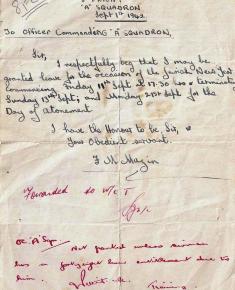 "A" SQUADRON
Sept 1st 1942
To Officer Commanding "A" SQUADRON,
Sir,
I respectfully beg that I may be
granted leave for the occasion of the Jewish New Year
commencing Friday 11th Sept at 17.30 hrs & terminating
Sunday 13th Sept; and Monday 21st Sept for the
Day of Atonement
I have the Honour to be, Sir,
Your Obedient servant.
F. M.
Forwarded to W/C T
OC. "A" Sqn Not granted unless airman
has a leave entitlement due to
him.
Training